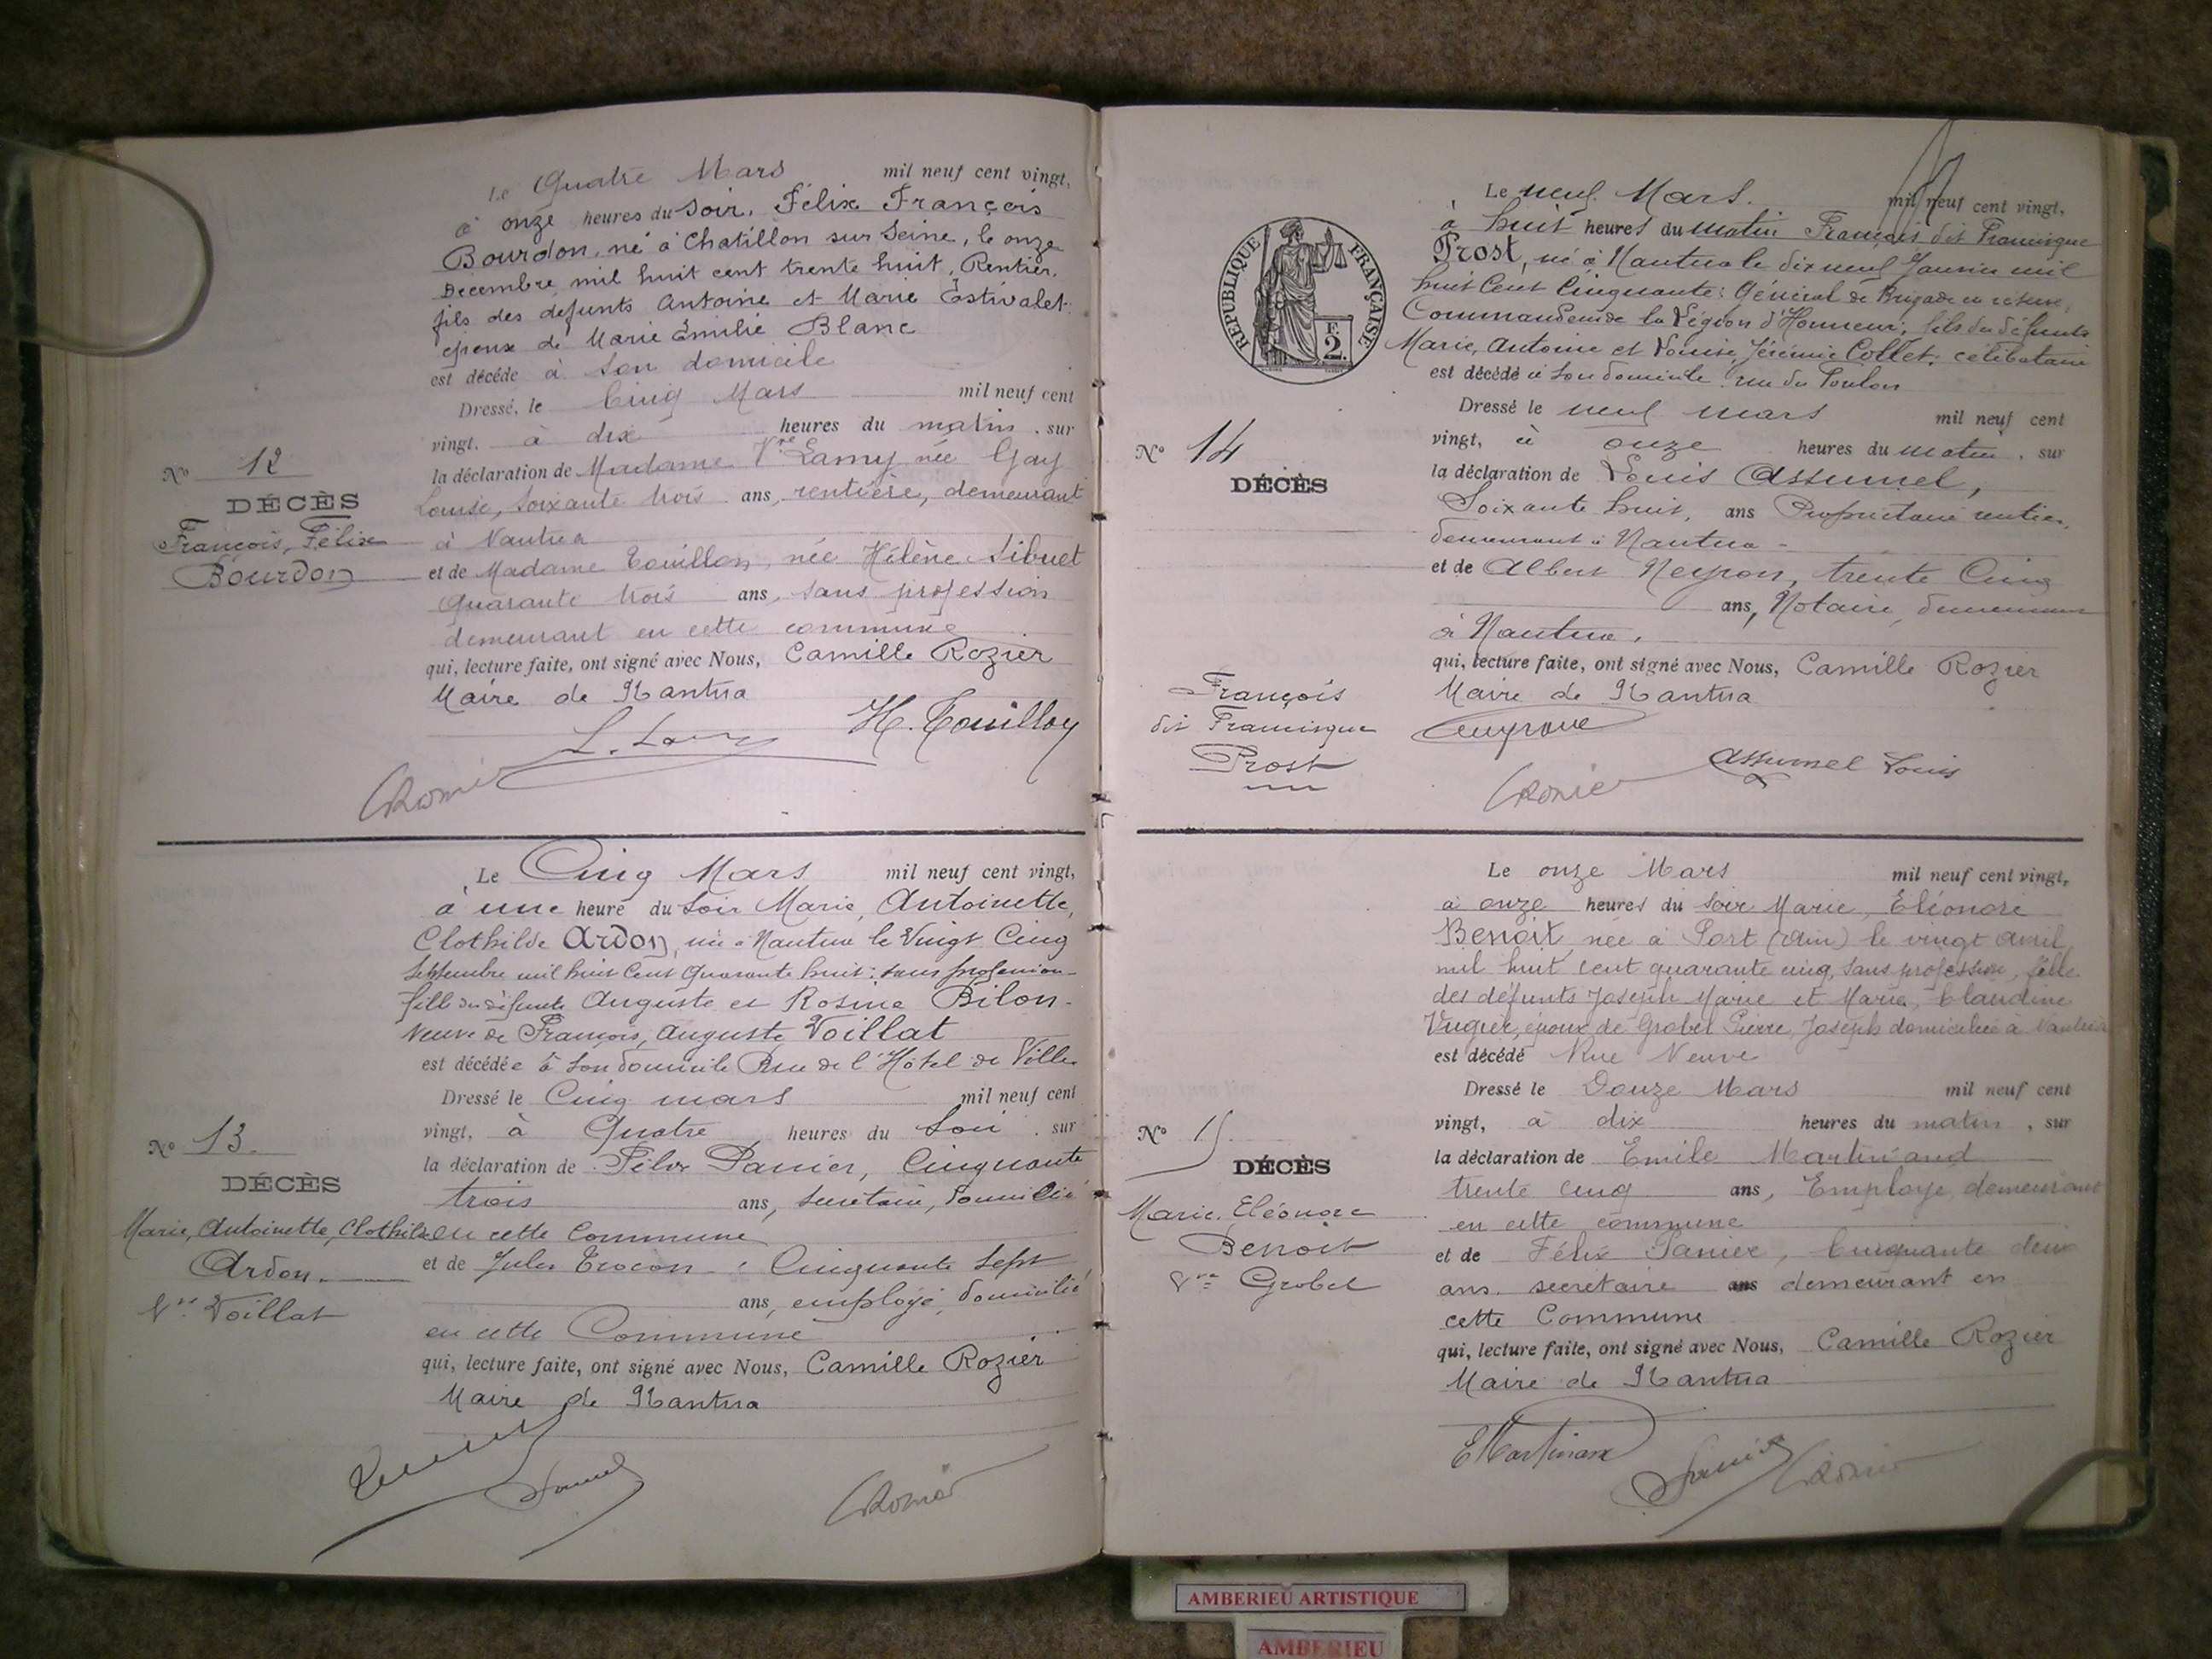 Le Quatre Mars mil neuf cent vingt,
à onze heures du soir, Félix François
Bourdon, né à Chatillon sur Seine, le onze
Decembre mil huit cent trente huit, Rentier,
fils des defunts Antoine et Marie Estivalet
epoux de Marie Emilie Blanc
est décédé à son domicile
Dressé, le Cinq Mars mil neuf cent
vingt, à dix heures du matin, sur
la déclaration de Madame Vve Lamy née Gay
Louise, soixante trois ans, rentière, demeurant
à Nantua
et de Madame Touillon, née Hélène Sibuet
Quarante trois ans, sans profession
demeurant en cette commune
qui, lecture faite, ont signé avec Nous, Camille Rozier
Maire de Nantua
L. Lamy H. Touillon
CRozier
No 12
DÉCÈS
François, Félix
Bourdon
Le Cinq Mars mil neuf cent vingt,
à une heure du soir Marie, Antoinette,
Clothilde Ardon, née à Nantua le Vingt Cinq
Septembre mil huit Cent Quarante huit; sans profession
fille des défunts Auguste et Rosine Bilon
Veuve de François, Auguste Voillat
est décédée à son domicile Rue de l'Hôtel de Ville
Dressé le Cinq mars mil neuf cent
vingt, à Quatre heures du Soir, sur
la déclaration de Félix Panier, Cinquante
trois ans, secrétaire, domicilié
en cette Commune
et de Jules Crocon; Cinquante Sept
ans, employé, domicilié
en cette Commune
qui, lecture faite, ont signé avec Nous, Camille Rozier
Maire de Nantua
CRozier
No 13
DÉCÈS
Marie, Antoinette, Clothilde
Ardon
Vve Voillat
RÉPUBLIQUE FRANÇAISE
F.
2.
Le neuf Mars mil neuf cent vingt,
à huit heures du matin François dit Francisque
Prost, né à Nantua le dix neuf Janvier mil
huit Cent Cinquante; Général de Brigade en réserve,
Commandeur de la Légion d'Honneur; fils des défunts
Marie, Antoine et Louise, Jérémie Collet; célibataire
est décédé à son domicile rue du
Dressé le neuf mars mil neuf cent
vingt, à onze heures du matin, sur
la déclaration de Louis Assumel,
Soixante huit, ans Propriétaire rentier,
demeurant à Nantua
et de Albert Neyron, trente Cinq
ans, Notaire, demeurant
à Nantua,
qui, lecture faite, ont signé avec Nous, Camille Rozier
Maire de Nantua
Assumel Louis
CRozier
No 14
DÉCÈS
François
dit Francisque
Prost
Le onze Mars mil neuf cent vingt,
à onze heures du soir Marie, Eléonore
Benoit, née à Port (Ain) le vingt avril
mil huit cent quarante cinq, sans profession, fille
des défunts Joseph Marie et Marie, Claudine
Vugier, époux de Grobel Pierre, Joseph domiciliée à Nantua
est décédé Rue Neuve
Dressé le Douze Mars mil neuf cent
vingt, à dix heures du matin, sur
la déclaration de Emile Martinand
trente cinq ans, Employé, demeurant
en cette commune
et de Félix Panier, Cinquante deux
ans secrétaire ans demeurant en
cette Commune
qui, lecture faite, ont signé avec Nous, Camille Rozier
Maire de Nantua
EMartinand Panier CRozier
No 15
DÉCÈS
Marie, Eléonore
Benoit
Vve Grobel
AMBERIEU ARTISTIQUE
AMBERIEU